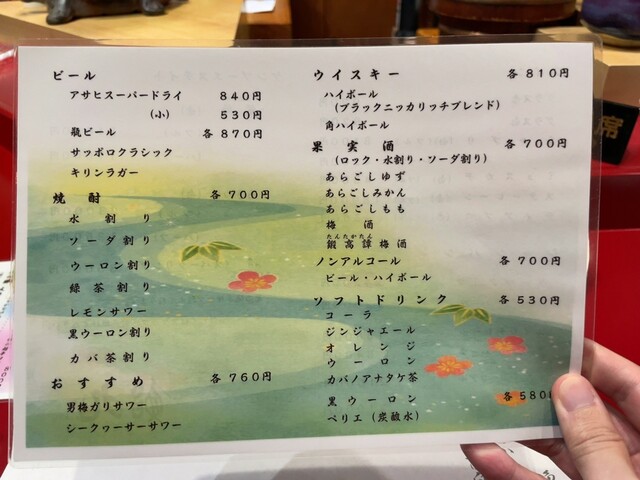 ビール
アサヒスーパードライ 840円
(小) 530円
瓶ビール 各870円
サッポロクラシック
キリンラガー
焼酎 各700円
水割り
ソーダ割り
ウーロン割り
緑茶割り
レモンサワー
黒ウーロン割り
カバ茶割り
おすすめ 各760円
男梅ガリサワー
シークヮーサーサワー
ウイスキー 各810円
ハイボール
(ブラックニッカリッチブレンド)
角ハイボール
果実酒 各700円
(ロック・水割り・ソーダ割り)
あらごしゆず
あらごしみかん
あらごしもも
梅酒
たんたかたん
鍛高譚梅酒
ノンアルコール 各700円
ビール・ハイボール
ソフトドリンク 各530円
コーラ
ジンジャエール
オレンジ
ウーロン
カバノアナタケ茶
黒ウーロン 各580円
ペリエ(炭酸水)
席